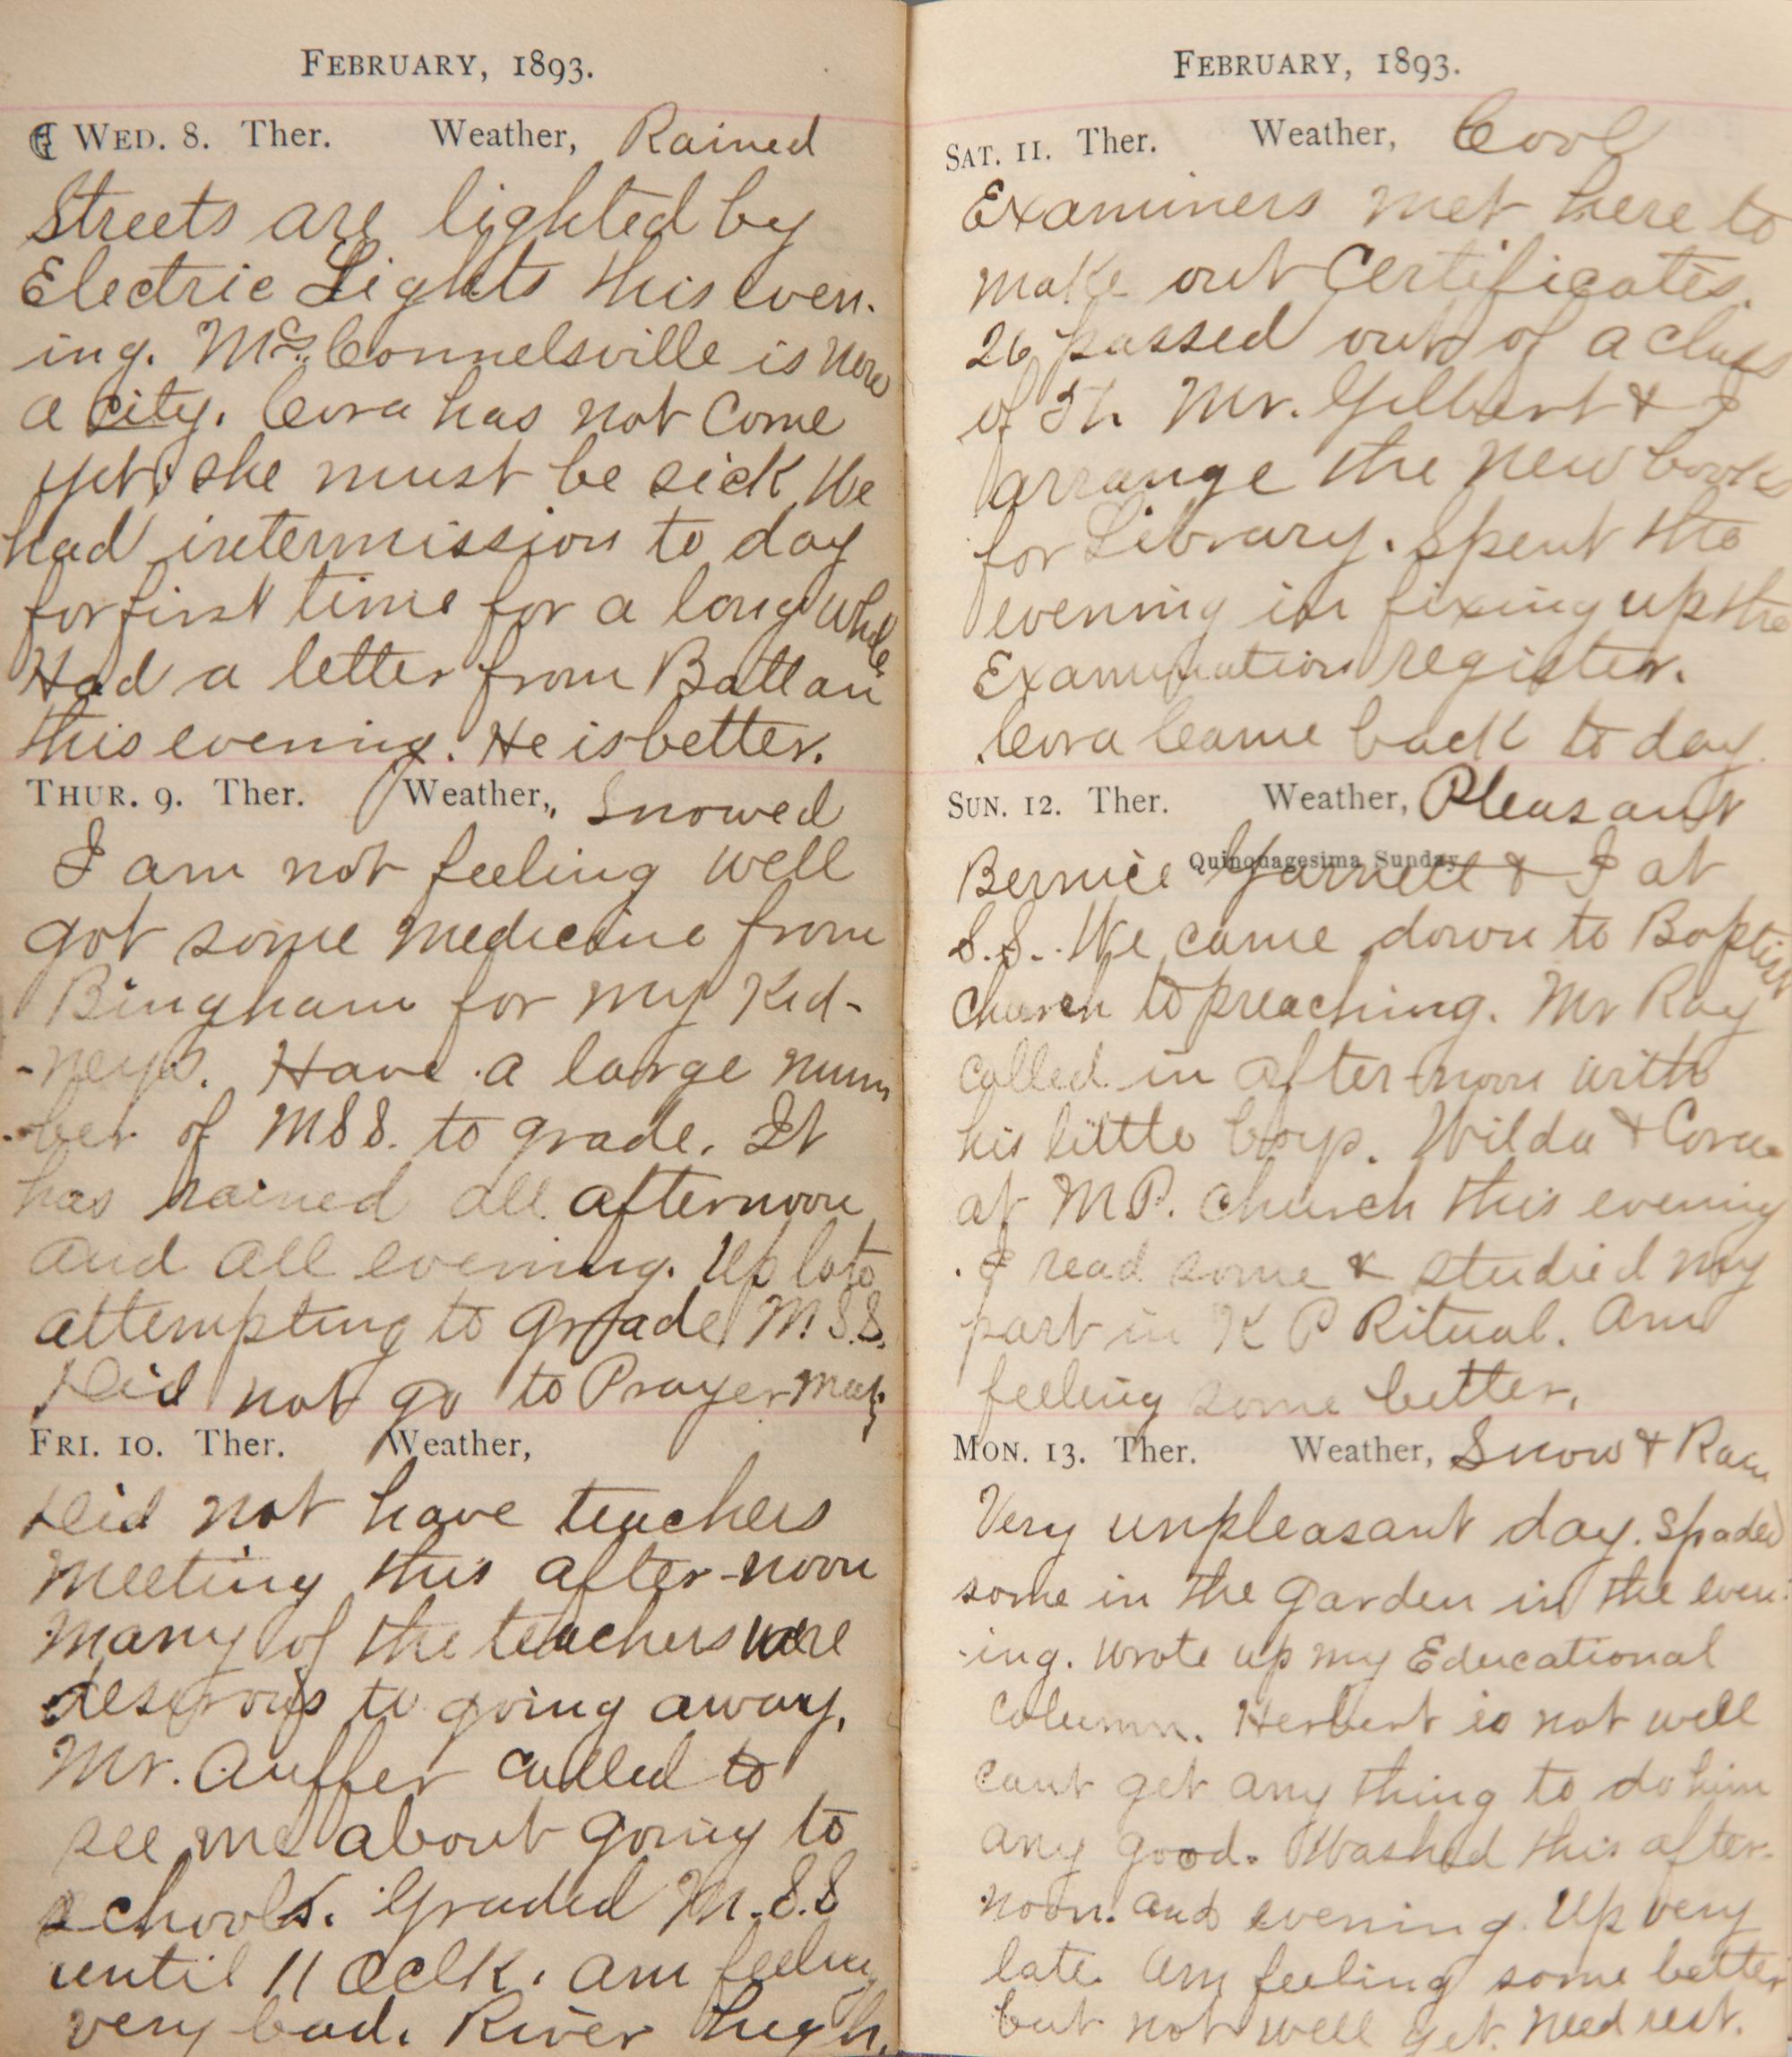 FEBRUARY, 1893.
WED. 8. Ther. Weather, Rained
Streets are lighted by
Electric Lights this even.
ing. McConnelsville is now
a city. Cora has not Come
yet, she must be sick We
had intermission to day
for first time for a long while
Had a letter from
this evening. He is better.
THUR. 9. Ther. Weather, Snowed
I am not feeling well
got some medicine from
Bingham for my Kid-
-neys. Have a large num
-ber of MSS. to grade. It
has rained all afternoon
and all evening. Up late
attempting to grade M.S.S.
Did not go to Prayer Meet
FRI. 10. Ther. Weather,
Did not have teachers
meeting this after-noon
many of the teachers were
desirous to going away.
Mr. Auffer called to
see me about going to
schools. Graded M.S.S
until 11 Oclk. am feeling
very bad. River high.
FEBRUARY, 1893.
SAT. 11. Ther. Weather, Cool
Examiners met here to
make out Certificates.
26 passed out of a class
of Mr. Gilbert & I
arrange the new books
for Library. Spent the
evening in fixing up the
Examination register.
Cora Came back to day.
SUN. 12. Ther. Weather, Pleasant
Quinquagesima Sunday
Bernice Garnett & I at
S.S. We came down to Baptist
church to preaching. Mr Ray
called in after-noon with
his little boys. Wilda & Cora
at M.P. Church this evening
I read some & studied my
part in K P Ritual. Am
feeling some better.
MON. 13. Ther. Weather, Snow & Rain
Very unpleasant day. Spaded
some in the garden in the even-
-ing. Wrote up my Educational
column. Herbert is not well
cant get any thing to do him
any good. Washed this after-
noon. and evening. Up very
late. Am feeling some better
but not well yet. Need rest.